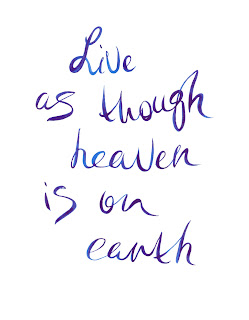 Live
as though
heaven
is on
earth